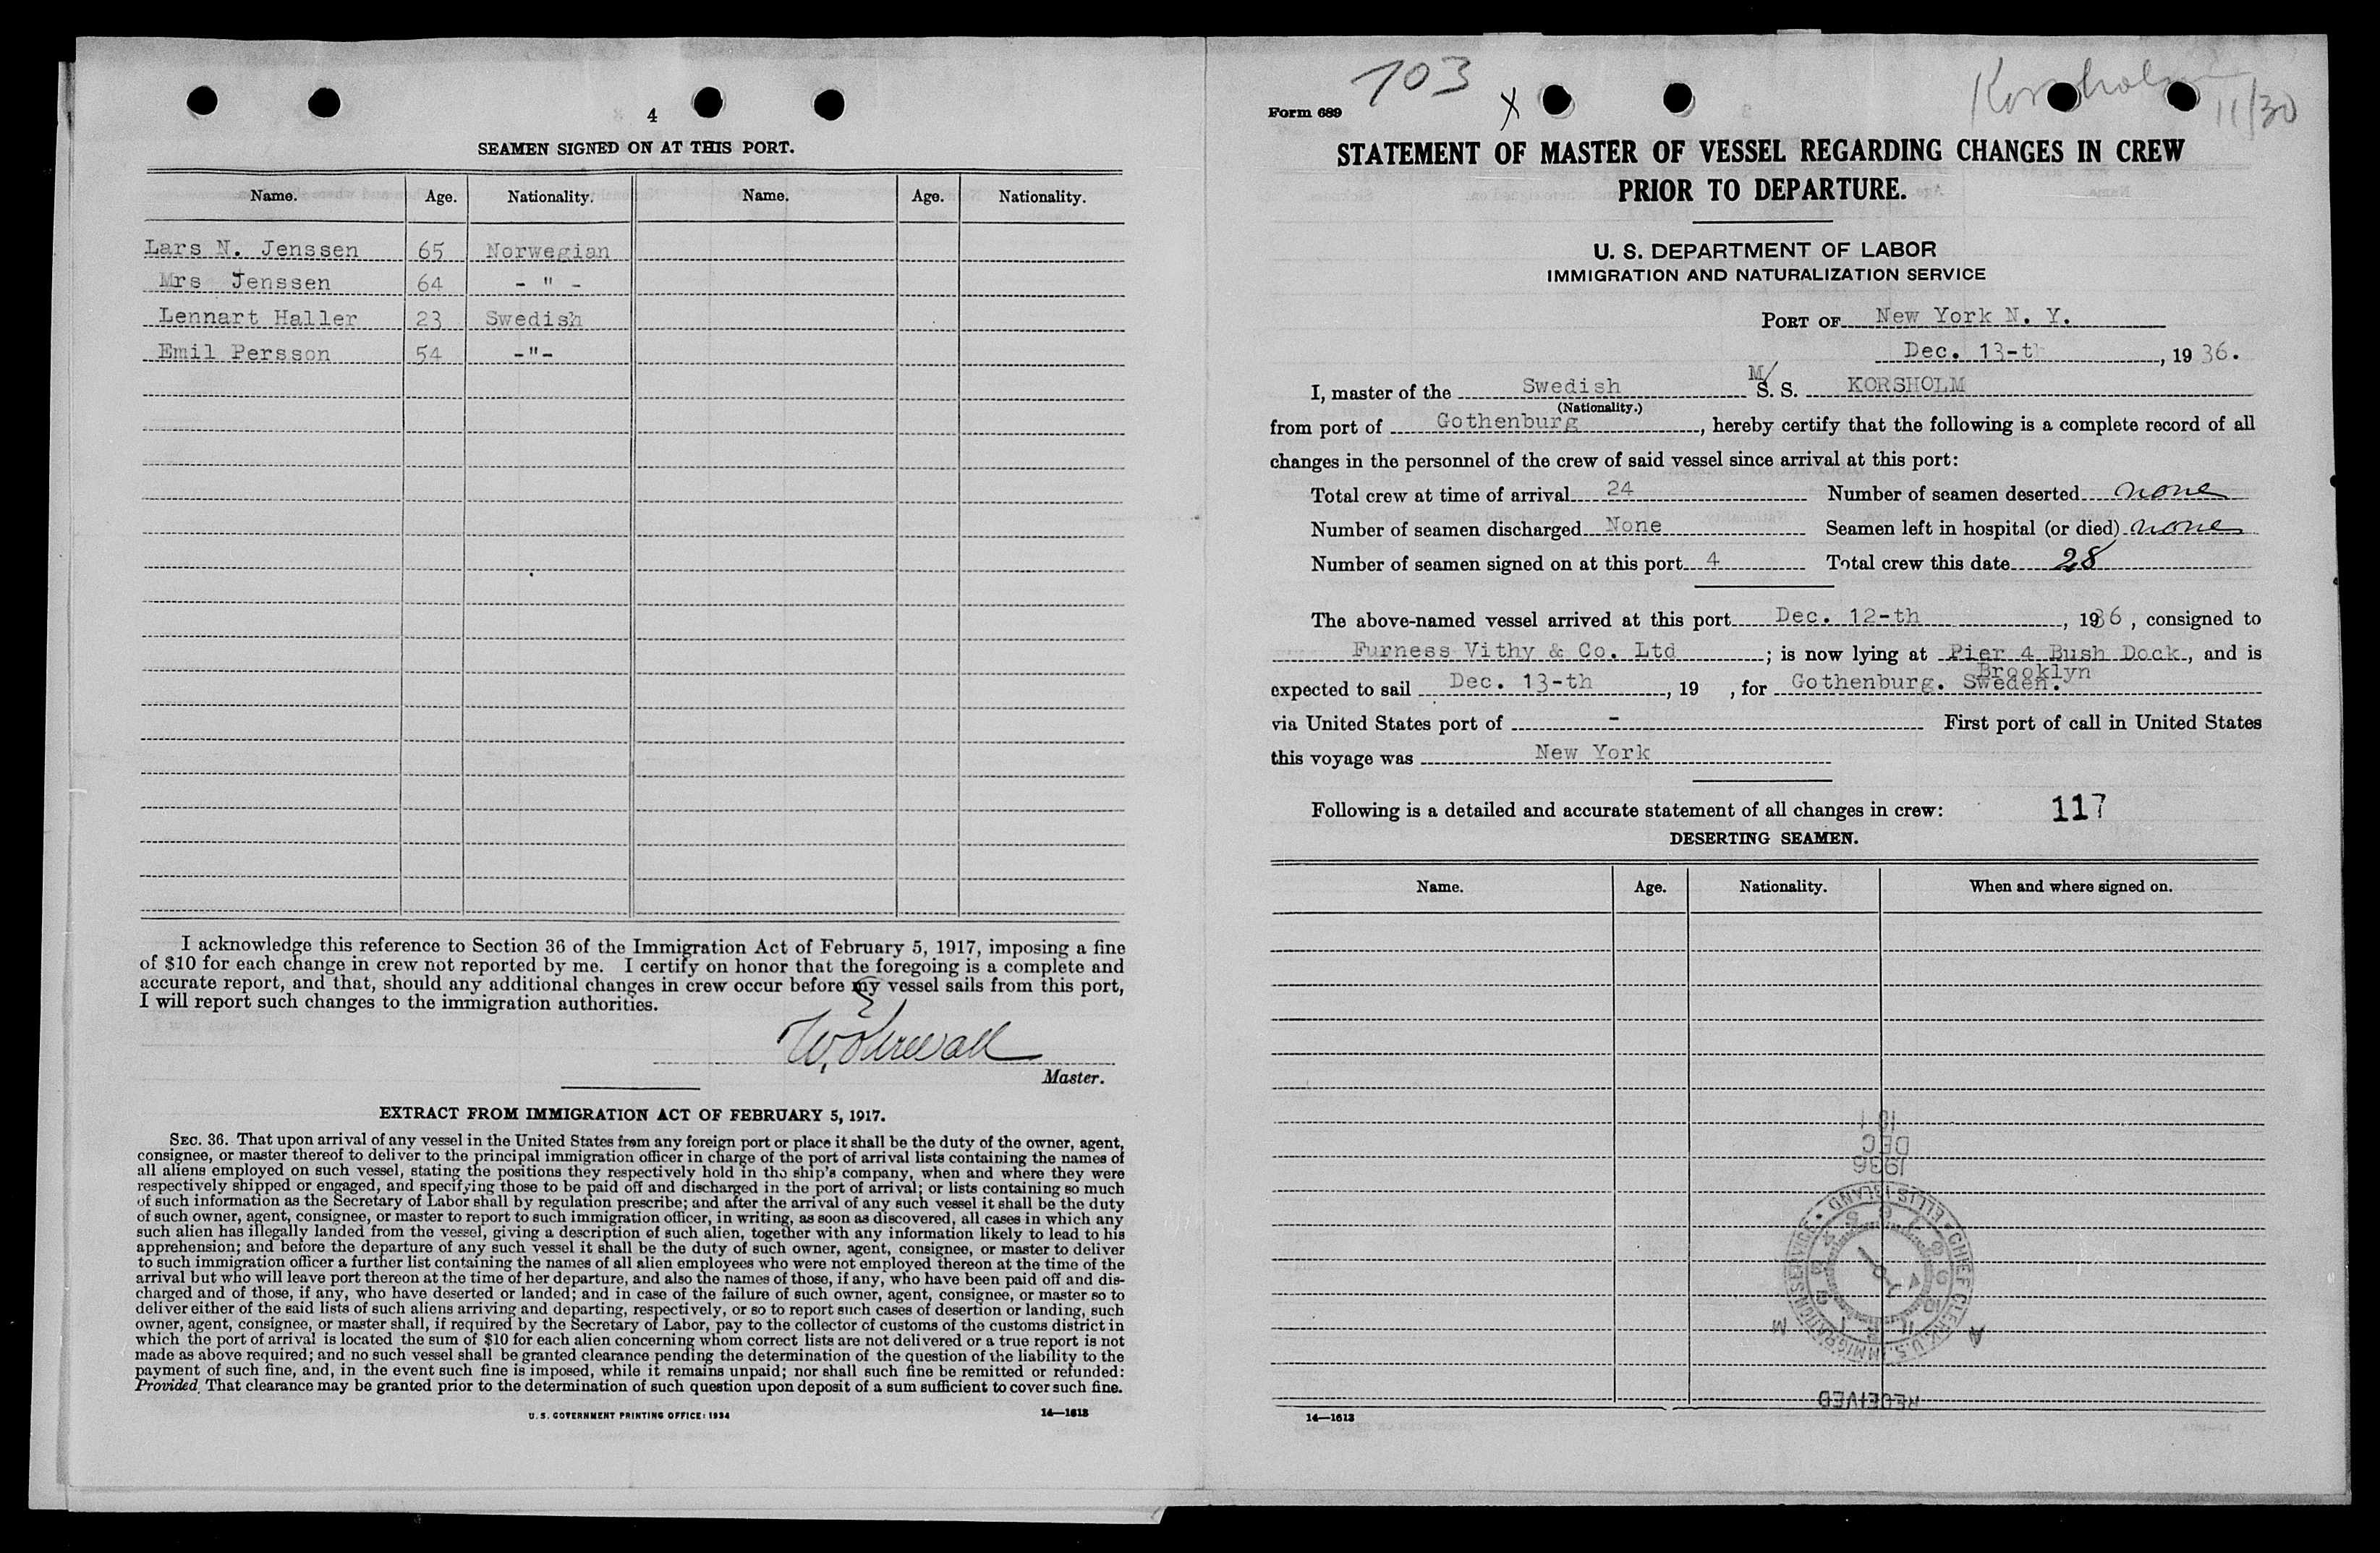 4
SEAMEN SIGNED ON AT THIS PORT.
Name. Age. Nationality. Name. Age. Nationality.
Lars N. Jenssen 65 Norwegian
Mrs Jenssen 64 - " -
Lennart Haller 23 Swedish
Emil Persson 54 -"-
I acknowledge this reference to Section 36 of the Immigration Act of February 5, 1917, imposing a fine
of $10 for each change in crew not reported by me. I certify on honor that the foregoing is a complete and
accurate report, and that, should any additional changes in crew occur before my vessel sails from this port,
I will report such changes to the immigration authorities.
Master.
EXTRACT FROM IMMIGRATION ACT OF FEBRUARY 5, 1917.
SEC. 36. That upon arrival of any vessel in the United States from any foreign port or place it shall be the duty of the owner, agent,
consignee, or master thereof to deliver to the principal immigration officer in charge of the port of arrival lists containing the names of
all aliens employed on such vessel, stating the positions they respectively hold in the ship's company, when and where they were
respectively shipped or engaged, and specifying those to be paid off and discharged in the port of arrival; or lists containing so much
of such information as the Secretary of Labor shall by regulation prescribe; and after the arrival of any such vessel it shall be the duty
of such owner, agent, consignee, or master to report to such immigration officer, in writing, as soon as discovered, all cases in which any
such alien has illegally landed from the vessel, giving a description of such alien, together with any information likely to lead to his
apprehension; and before the departure of any such vessel it shall be the duty of such owner, agent, consignee, or master to deliver
to such immigration officer a further list containing the names of all alien employees who were not employed thereon at the time of the
arrival but who will leave port thereon at the time of her departure, and also the names of those, if any, who have been paid off and dis-
charged and of those, if any, who have deserted or landed; and in case of the failure of such owner, agent, consignee, or master so to
deliver either of the said lists of such aliens arriving and departing, respectively, or so to report such cases of desertion or landing, such
owner, agent, consignee, or master shall, if required by the Secretary of Labor, pay to the collector of customs of the customs district in
which the port of arrival is located the sum of $10 for each alien concerning whom correct lists are not delivered or a true report is not
made as above required; and no such vessel shall be granted clearance pending the determination of the question of the liability to the
payment of such fine, and, in the event such fine is imposed, while it remains unpaid; nor shall such fine be remitted or refunded:
Provided, That clearance may be granted prior to the determination of such question upon deposit of a sum sufficient to cover such fine.
U. S. GOVERNMENT PRINTING OFFICE: 1934 14—1613
103 X Korsholm 11/30
Form 689
STATEMENT OF MASTER OF VESSEL REGARDING CHANGES IN CREW
PRIOR TO DEPARTURE.
U. S. DEPARTMENT OF LABOR
IMMIGRATION AND NATURALIZATION SERVICE
PORT OF New York N. Y.
Dec. 13-th, 1936.
I, master of the Swedish M/ S. S. KORSHOLM
(Nationality.)
from port of Gothenburg, hereby certify that the following is a complete record of all
changes in the personnel of the crew of said vessel since arrival at this port:
Total crew at time of arrival 24 Number of seamen deserted none
Number of seamen discharged None Seamen left in hospital (or died) none
Number of seamen signed on at this port 4 Total crew this date 28
The above-named vessel arrived at this port Dec. 12-th, 1936, consigned to
Furness Vithy & Co. Ltd; is now lying at Pier 4 Bush Dock, and is
Brooklyn
expected to sail Dec. 13-th, 19 , for Gothenburg. Sweden.
via United States port of - First port of call in United States
this voyage was New York
Following is a detailed and accurate statement of all changes in crew: 117
DESERTING SEAMEN.
Name. Age. Nationality. When and where signed on.
RECEIVED
CHIEF CLERK U.S. IMMIGRATION SERVICE • ELLIS ISLAND •
A M
1936
DEC
14—1613